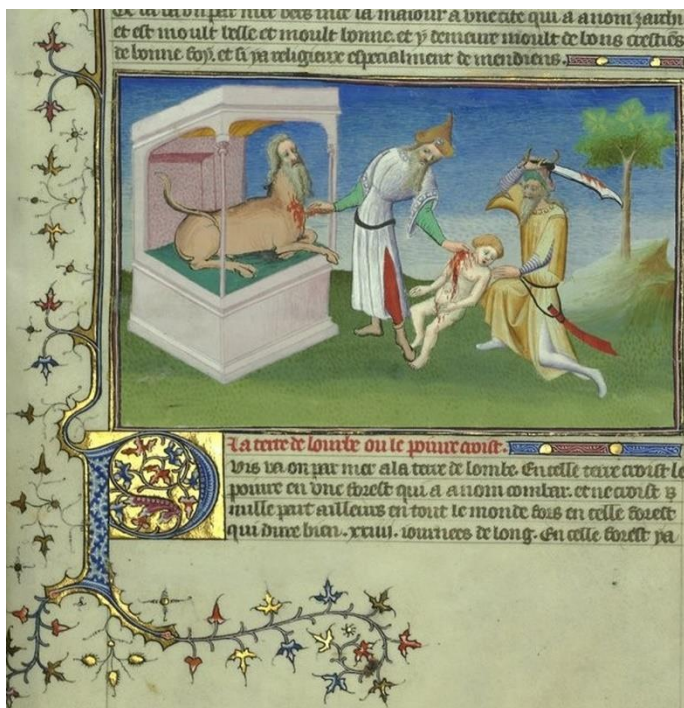 De la ua on par mer vers inde la maiour a vne cite qui a a nom zarchi
et est moult belle et moult bonne. et y demeure moult de bons crestiens
de bonne foy. et si ya religieux especialment de mendiens.
La terre de lombe ou le poiure croist.
Puis va on par mer a la terre de lombe. En celle terre croist le
poiure en vne forest qui a a nom combar. et ne croist
nulle part ailleurs en tout le monde fors en celle forest
qui dure bien .xxiii. iournees de long. En celle forest ya